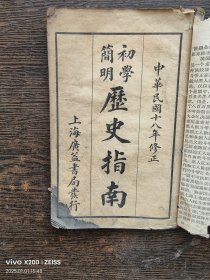 中華民國十八年修正
初學
簡明
歷史指南
上海廣益書局發行
vivo X200 | ZEISS
2025.01.01 15:48